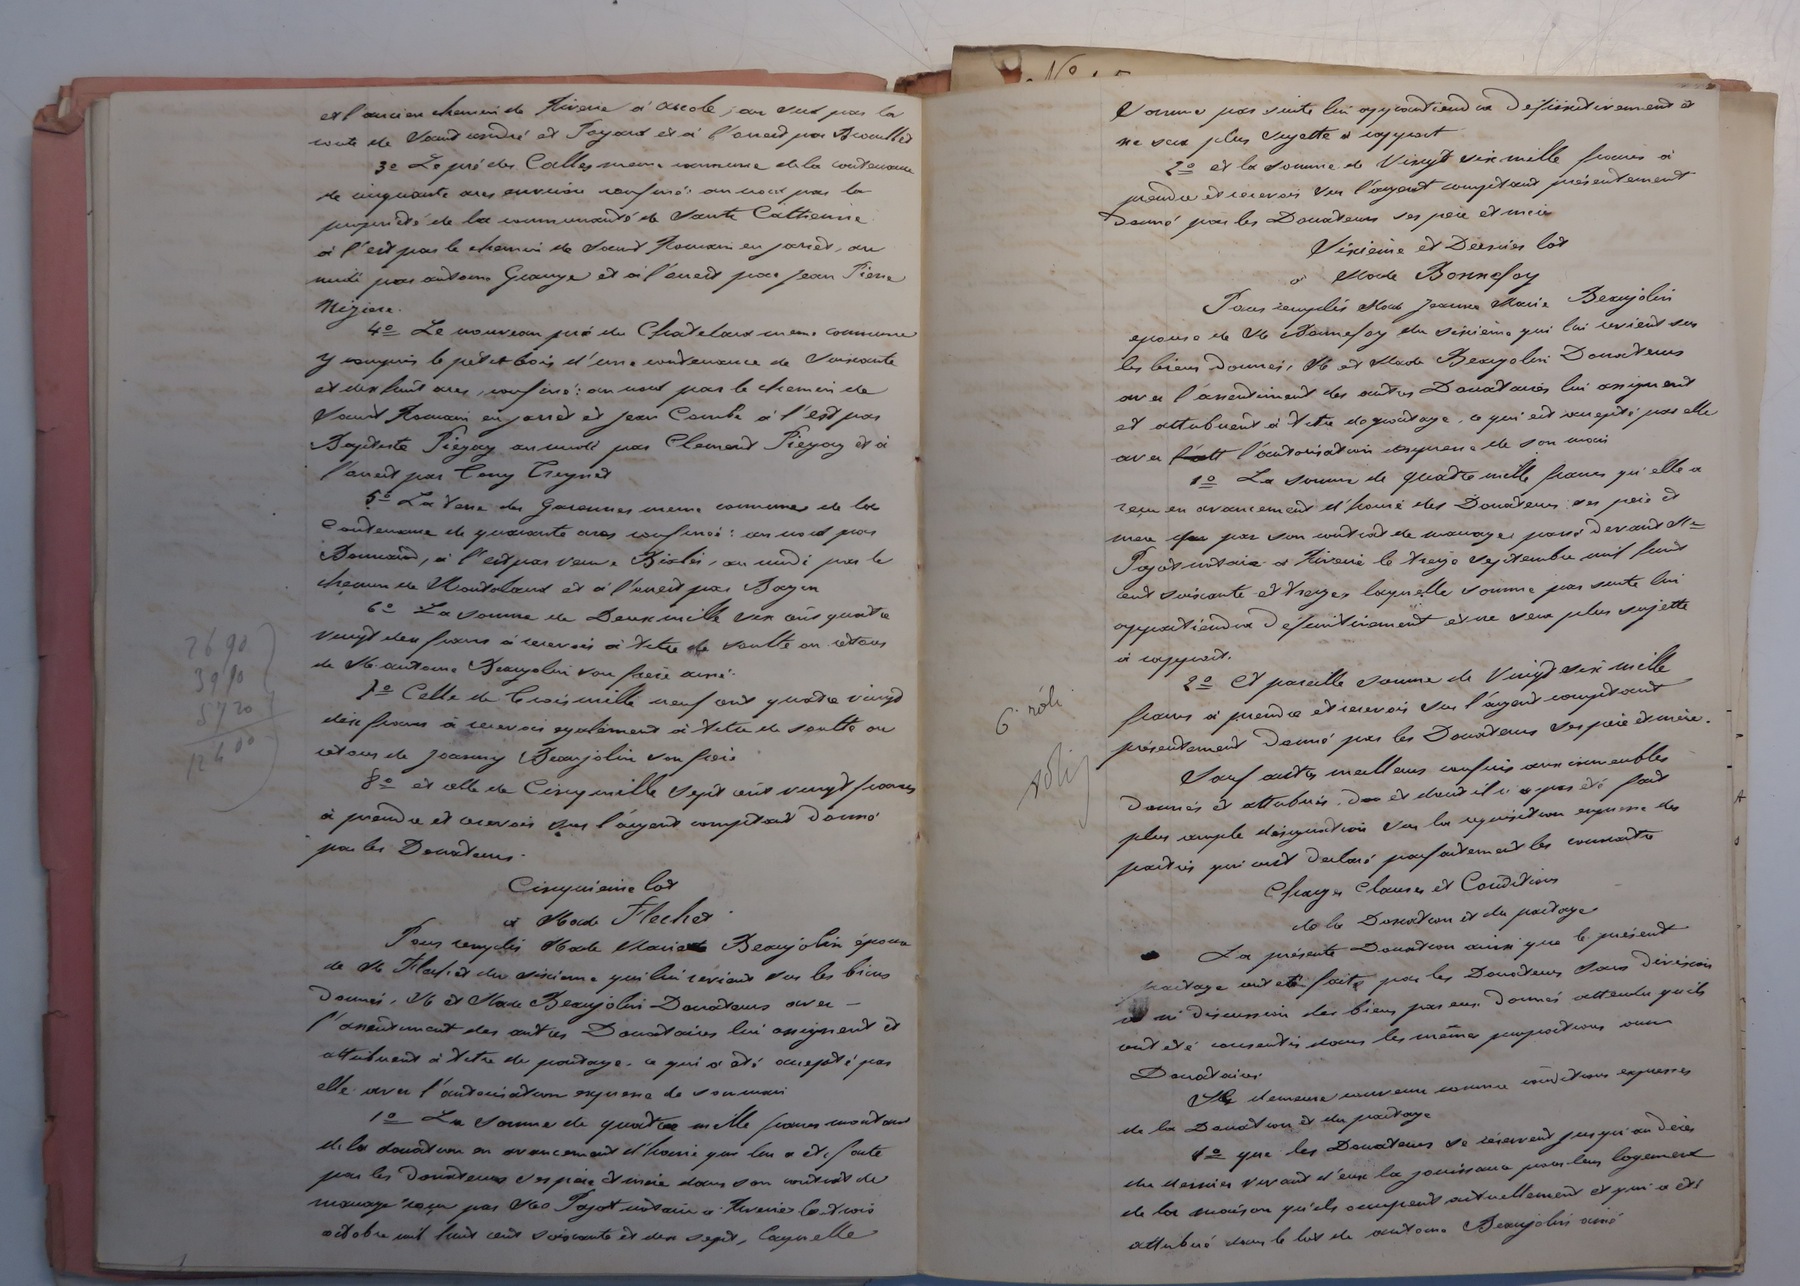 et l'ancien chemin de Riverie à ; au sud par la
route de Saint andré et Payard et à l'ouest par
3e Le pré des Calles meme commune de la contenance
de cinquante ares environ confiné: au nord par la
propriété de la communauté de Sainte Catherine
à l'est par le chemin de Saint Romain en jarret, au
midi par antoine Grange et à l'ouest par Jean Pierre

4o Le nouveau pré du Châtelard meme commune
y compris le petit bois d'une contenance de Soixante
et dix huit ares, confiné: au nord par le chemin de
Saint Romain en jarret et Jean Combe à l'est par
Baptiste Piégay au midi par Clement Piégay et à
l'ouest par
5o La Terre des Garennes meme commune de la
Contenance de quarante ares confiné: au nord par
à l'est par veuve au midi par le
chemin de et à l'ouest par
6o La somme de Deux mille six cent quatre
vingt dix francs à recevoir à titre de soulte ou retour
de M antoine Beaujolin son frère ainé.
7o Celle de Trois mille neuf cent quatre vingt
dix francs à recevoir également à titre de soulte ou
retour de Joanny Beaujolin son frère
8o et celle de Cinq mille sept cent vingt francs
à prendre et recevoir sur l'argent comptant donné
par les Donateurs.
Cinquième lot
à Made Flechet
Pour remplir Made Marie Beaujolin épouse
de M Flechet du sixieme qui lui revient sur les biens
donnés, M et Made Beaujolin Donateurs avec
l'assentiment des autres Donataires lui assignent et
attribuent à titre de partage, ce qui a été accepté par
elle avec l'autorisation expresse de son mari
1o La somme de quatre mille francs montant
de la donation en avancement d'hoirie qui lui a été faite
par les donateurs ses père et mère dans son contrat de
mariage reçu par Me Pajot notaire à Riverie le trois
octobre mil huit cent soixante et dix sept, laquelle
2690
3990
5720
12400
Somme par suite lui appartiendra définitivement et
ne sera plus sujette à rapport
2o et la somme de Vingt six mille francs à
prendre et recevoir sur l'argent comptant présentement
donné par les Donateurs ses père et mère
Sixième et Dernier lot
à Made Bonnefoy
Pour remplir Made Jeanne Marie Beaujolin
epouse de M Bonnefoy du sixième qui lui revient sur
les biens donnés, M et Made Beaujolin Donateurs
avec l'assentiment des autres Donataires lui assignent
et attribuent à titre de partage, ce qui est accepté par elle
avec l'autorisation expresse de son mari
1o La somme de quatre mille francs qu'elle a
reçu en avancement d'hoirie des Donateurs ses père et
mère par son contrat de mariage passé devant Me
Pajot notaire à Riverie le treize septembre mil huit
cent soixante et treize, laquelle somme par suite lui
appartiendra définitivement et ne sera plus sujette
à rapport.
2o Et pareille somme de Vingt six mille
francs à prendre et recevoir sur l'argent comptant
présentement donné par les Donateurs ses père et mère.
Sauf autres meilleurs confins aux immeubles
donnés et attribués. et dont il n'a pas été fait
plus ample désignation sur la réquisition expresse des
parties qui ont déclaré parfaitement les connaitre
Charges Clauses et Conditions
de la Donation et du partage
La présente Donation ainsi que le présent
partage ont été faits par les Donateurs sans division
ni discussion des biens par eux donnés attendu qu'ils
ont été consentis dans les mêmes proportions aux
Donataires.
Il demeure convenu comme conditions expresses
de la Donation et du partage
1o que les Donateurs se réservent jusqu'au décès
du dernier vivant d'eux la jouissance pour leur logement
de la maison qu'ils occupent actuellement et qui a été
attribué dans le lot de antoine Beaujolin ainé
6e rôle